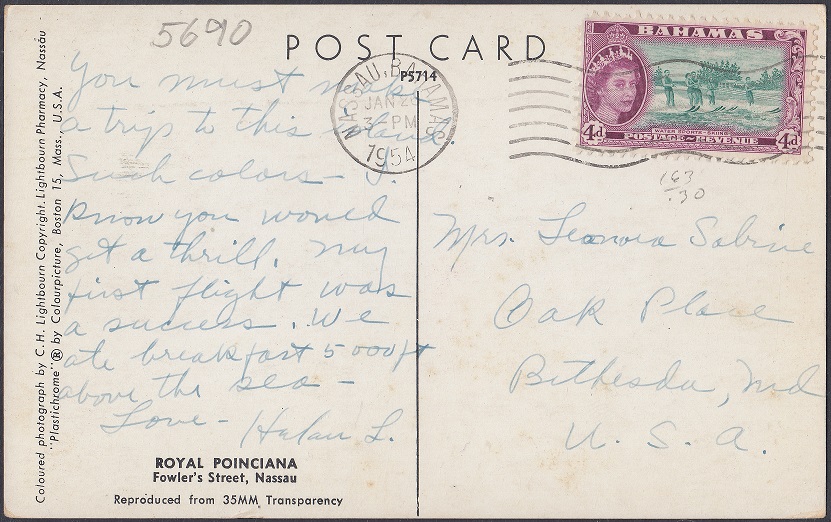 5690
POST CARD
P5714
NASSAU, BAHAMAS
JAN 26
3 PM
1954
BAHAMAS
4d
WATER SPORTS - SKIING
POSTAGE - REVENUE
4d
163
/.30
You must make
a trip to this island.
Such colors - I
know you would
get a thrill. My
first flight was
a success. We
ate breakfast 5000 ft
above the sea -
Love - Helen L.
Mrs. Leonora Sabrie
Oak Place
Bethesda, Md
U. S. A.
ROYAL POINCIANA
Fowler's Street, Nassau
Reproduced from 35MM Transparency
Coloured photograph by C.H. Lightbourn Copyright. Lightbourn Pharmacy, Nassau
"Plastichrome" ® by Colourpicture, Boston 15, Mass., U.S.A.